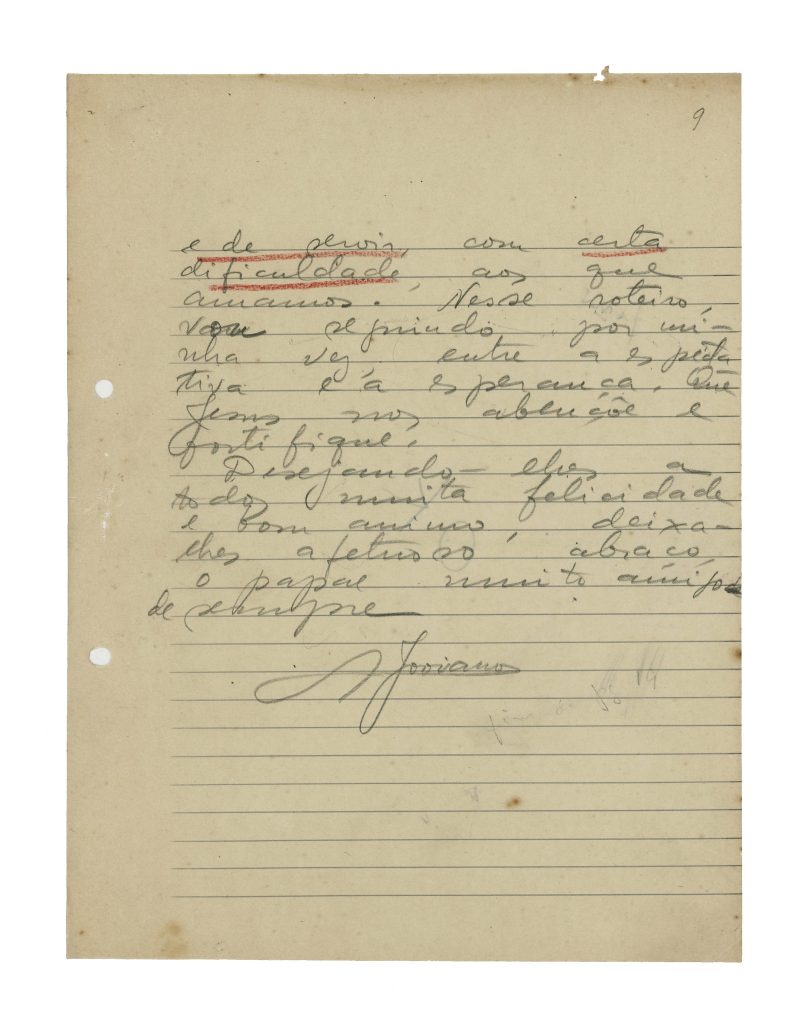 9
e de servir, com certa
dificuldade, aos que
amamos. Nesse roteiro,
vou seguindo por mi-
nha vez, entre a expecta
tiva e a esperança. Que
Jesus nos abençõe e
fortifique.
Desejando-lhes a
todos muita felicidade
e bom animo, deixa-
lhes afetuoso abraço,
o papae muito amigo
de sempre
A Joviano